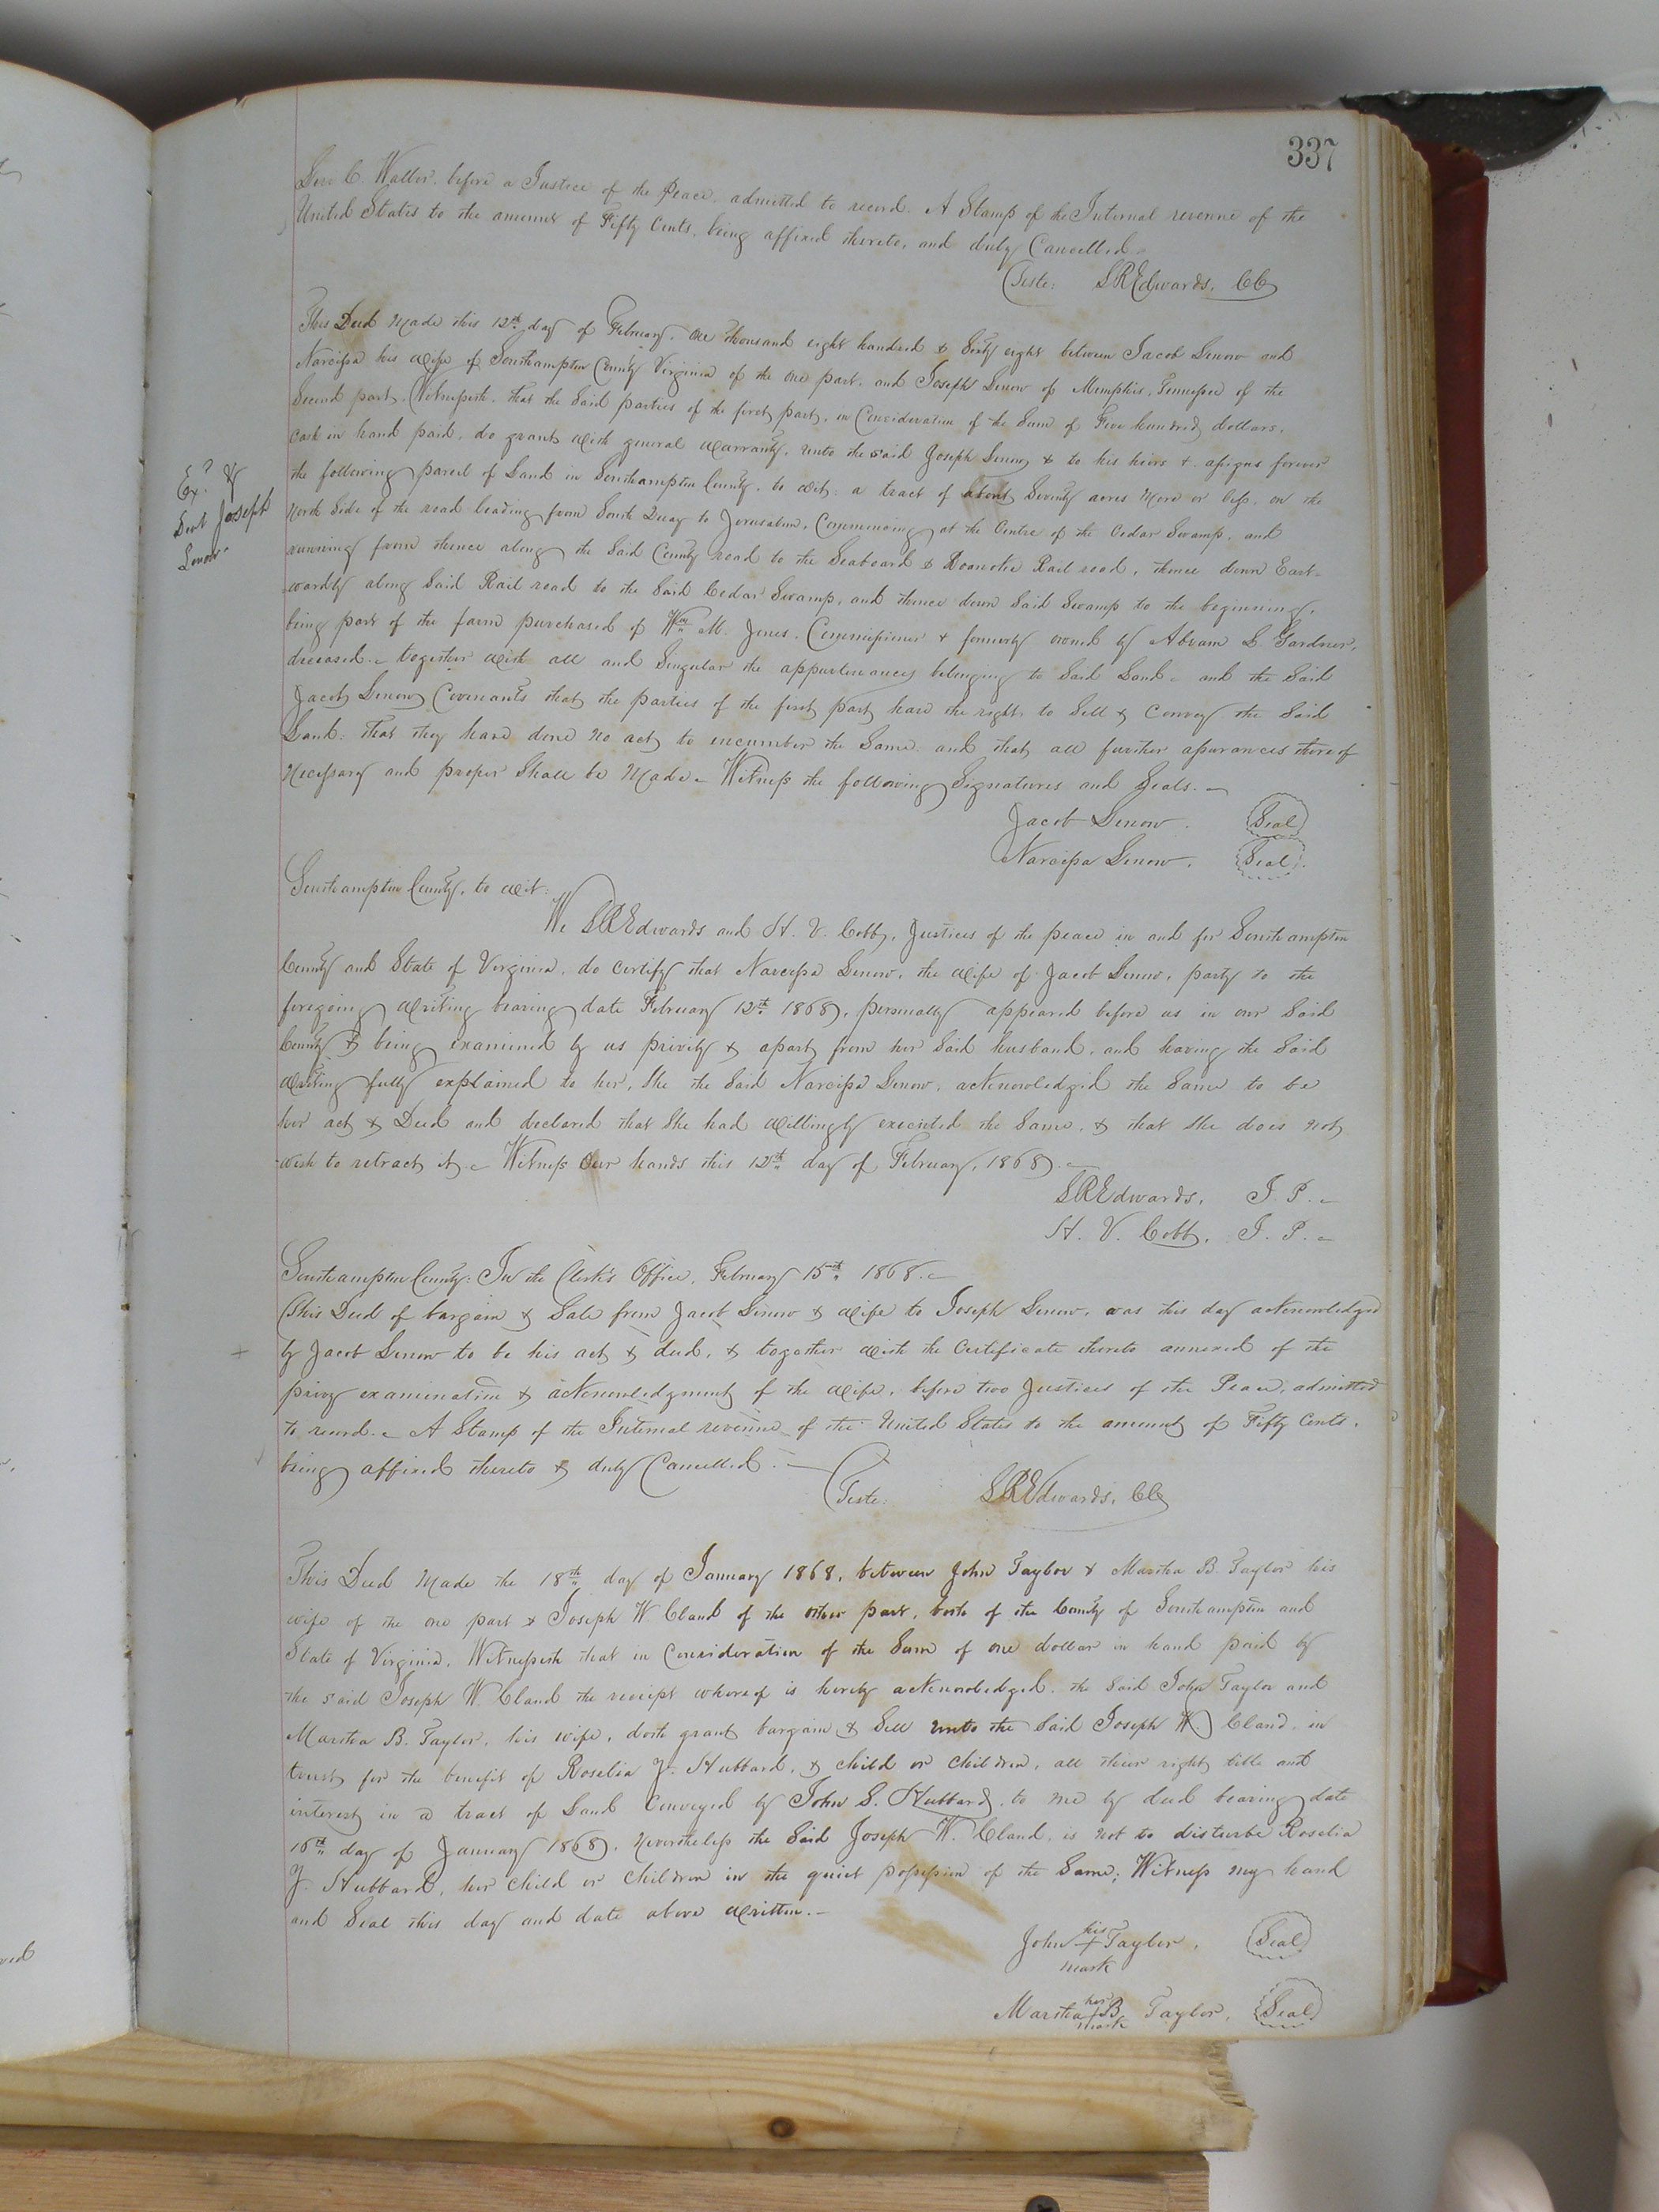 337
Geo C. Waller. before a Justice of the Peace. admitted to record. A Stamp of the Internal revenue of the
United States to the amount of Fifty Cents, being affixed thereto, and duly Cancelled.
Teste: LREdwards, CC
This Deed Made this 12th day of February, One thousand eight hundred & Sixty eight between Jacob Lenow and
Narcissa his wife of Southampton County Virginia of the one part. and Joseph Lenow of Memphis, Tennessee of the
Second part. Witnesseth. that the Said parties of the first part, in Consideration of the Sum of Five hundred dollars,
Cash in hand paid, do grant with general warranty, unto the said Joseph Lenow & to his heirs & assigns forever
the following parcel of Land in Southampton County. to wit: a tract of about Seventy acres More or less, on the
North Side of the road leading from South Quay to Jerusalem, Commencing at the Centre of the Cedar Swamp, and
running from thence along the Said County road to the Seaboard & Roanoke Rail road, thence down East-
wardly along Said Rail road to the Said Cedar Swamp, and thence down Said Swamp to the beginning,
being part of the farm purchased of Wm M. Jones. Commissioner & formerly owned by Abram L. Gardner,
deceased. together with all and Singular the appurtenances belonging to Said Land - and the Said
Jacob Lenow Covenants that the parties of the first part have the right to Sell & Convey the Said
Land: That they have done no act to encumber the Same: and that all further assurances thereof
Necessary and proper Shall be Made. Witness the following Signatures and Seals.
Ex.d &
Sent Joseph
Lenow
Jacob Lenow. Seal
Narcissa Lenow. Seal
Southampton County, to wit:
We LREdwards and H. V. Cobb, Justices of the peace in and for Southampton
County and State of Virginia, do certify that Narcissa Lenow, the wife of Jacob Lenow, party to the
foregoing writing bearing date February 12th 1868, personally appeared before us in our Said
County & being examined by us privily & apart from her Said husband, and having the Said
writing fully explained to her, She the Said Narcissa Lenow, acknowledged the Same to be
her act & Deed and declared that She had willingly executed the Same, & that She does not
wish to retract it. Witness Our hands this 12th day of February, 1868.
LREdwards, J. P.
H. V. Cobb, J. P.
Southampton County: In the Clerk's Office, February 15th 1868.
This Deed of bargain & Sale from Jacob Lenow & wife to Joseph Lenow, was this day acknowledged
by Jacob Lenow to be his act & deed, & together with the Certificate thereto annexed of the
privy examination & acknowledgment of the wife, before two Justices of the Peace, admitted
to record. A Stamp of the Internal revenue of the United States to the amount of Fifty Cents,
being affixed thereto & duly Cancelled.
Teste: LREdwards, CC
This Deed Made the 18th day of January 1868, between John Taylor & Martha B. Taylor his
wife of the one part & Joseph W. Cland of the other part, both of the County of Southampton and
State of Virginia, Witnesseth that in Consideration of the Sum of one dollar in hand paid by
the said Joseph W. Cland the receipt whereof is hereby acknowledged. the Said John Taylor and
Martha B. Taylor, his wife, doth grant bargain & Sell unto the Said Joseph W. Cland, in
trust for the benefit of Roselia J. Hubbard, & child or children, all their right title and
interest in a tract of Land Conveyed by John S. Hubbard, to me by deed bearing date
16th day of January 1868, Nevertheless the Said Joseph W. Cland, is not to disturbe Roselia
J. Hubbard, her child or children in the quiet possession of the Same; Witness my hand
and Seal this day and date above written.
John his + mark Taylor, Seal
Martha her + mark B. Taylor, Seal